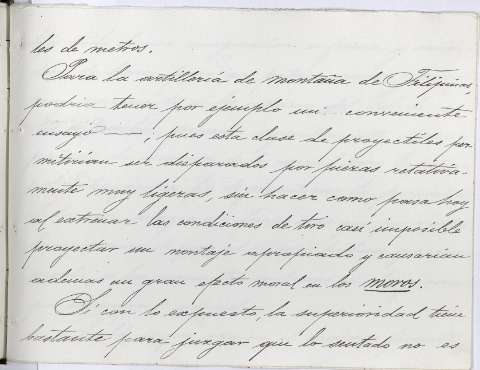 les de metros.
Para la artillería de montaña de Filipinas
podría tener por ejemplo un conveniente
ensayo ; pues esta clase de proyectiles per-
mitirían ser disparados por piezas relativa-
mente muy ligeras, sin hacer como pasa hoy
al extremar las condiciones de tiro casi imposible
proyectar un montaje apropiado y causarían
ademas un gran efecto moral en los moros.
Si con lo expuesto, la superioridad tiene
bastante para juzgar que lo sentado no es